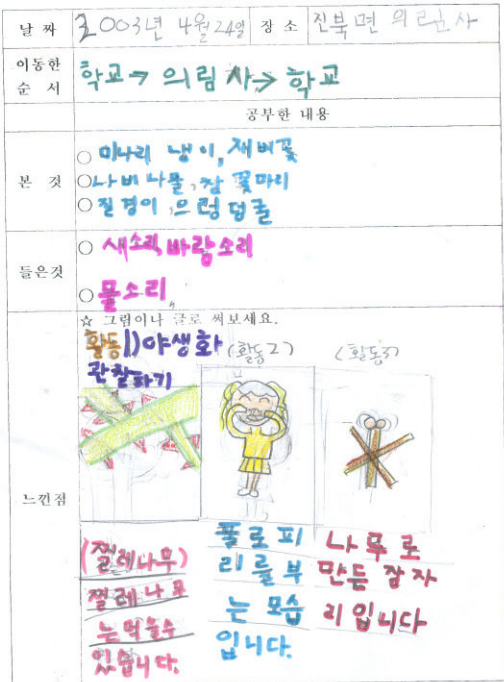 날 짜 2003년 4월 24일 장 소 진북면 의림사
이동한 순 서 학교→의림사→학교
공부한 내용
본 것
○ 미나리 냉이, 제비꽃
○ 나비나물, 참꽃마리
○ 질경이, 으렁덩굴
들은것
○ 새소리, 바람소리
○ 물소리,
느낀점
☆ 그림이나 글로 써보세요.
활동1)야생화
관찰하기
(활동2)
(활동3)
(찔레나무)
찔레나무
는먹을수
있습니다.
풀로피
리를부
는 모습
입니다.
나무로
만든 잠자
리입니다